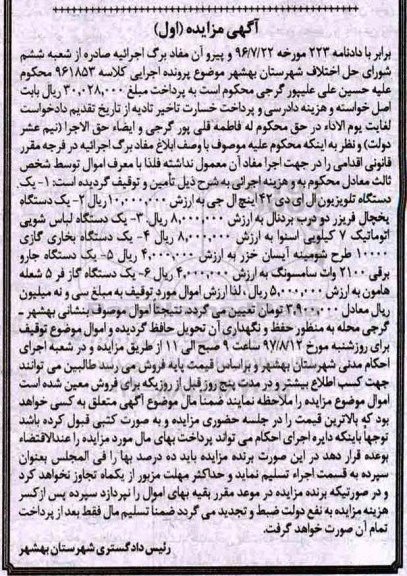 آگهی مزایده (اول)
برابر با دادنامه ۲۲۳ مورخه ۹۶/۷/۲۲ و پیرو آن مفاد برگ اجرائیه صادره از شعبه ششم
شورای حل اختلاف شهرستان بهشهر موضوع پرونده اجرایی کلاسه ۹۶۱۸۵۳ محکوم
علیه حسین علی علیپور گرجی محکوم است به پرداخت مبلغ ۳۰,۰۲۸,۰۰۰ ریال بابت
اصل خواسته و هزینه دادرسی و پرداخت خسارت تاخیر تادیه از تاریخ تقدیم دادخواست
لغایت یوم الاداء در حق محکوم له فاطمه قلی پور گرجی و ایضاء حق الاجرا (نیم عشر
دولت) و نظر به اینکه محکوم علیه موصوف با وصف ابلاغ مفاد برگ اجرائیه در فرجه مقرر
قانونی اقدامی را در جهت اجرا مفاد آن معمول نداشته فلذا با معرف اموال توسط شخص
ثالث معادل محکوم به و هزینه اجرائی به شرح ذیل تأمین و توقیف گردیده است: ۱- یک
دستگاه تلویزیون ال ای دی ۴۲ اینچ ال جی به ارزش ۱۰,۰۰۰,۰۰۰ ریال ۲- یک دستگاه
یخچال فریزر دو درب بردنال به ارزش ۸,۰۰۰,۰۰۰ ریال ۳- یک دستگاه لباس شویی
اتوماتیک ۷ کیلویی اسنوا به ارزش ۸,۰۰۰,۰۰۰ ریال ۴- یک دستگاه بخاری گازی
۱۰۰۰۰ طرح شومینه آیسان خزر به ارزش ۴,۰۰۰,۰۰۰ ریال ۵- یک دستگاه جارو
برقی ۲۱۰۰ وات سامسونگ به ارزش ۴,۰۰۰,۰۰۰ ریال ۶- یک دستگاه گاز فر ۵ شعله
هامون به ارزش ۵,۰۰۰,۰۰۰ ریال، لذا ارزش اموال مورد توقیف به مبلغ سی و نه میلیون
ریال معادل ۳,۹۰۰,۰۰۰ تومان تعیین می گردد. نتیجتاً اموال موصوف بنشانی بهشهر -
گرجی محله به منظور حفظ و نگهداری آن تحویل حافظ گردیده و اموال موضوع توقیف
برای روز شنبه مورخ ۹۷/۸/۱۲ ساعت ۹ صبح الی ۱۱ از طریق مزایده و در شعبه اجرای
احکام مدنی شهرستان بهشهر و براساس قیمت پایه فروش می رسد طالبین می توانند
جهت کسب اطلاع بیشتر و در مدت پنج روز قبل از روزیکه برای فروش معین شده است
اموال موضوع مزایده را ملاحظه نمایند ضمنا مال موضوع آگهی متعلق به کسی خواهد
بود که بالاترین قیمت را در جلسه حضوری مزایده و به صورت کتبی قبول کرده باشد
توجهاً باینکه دایره اجرای احکام می تواند پرداخت بهای مال مورد مزایده را عندالاقتضاء
بوعده قرار دهد در این صورت برنده مزایده باید ده درصد بها را فی المجلس بعنوان
سپرده به قسمت اجراء تسلیم نماید و حداکثر مهلت مزبور از یکماه تجاوز نخواهد کرد
و در صورتیکه برنده مزایده در موعد مقرر بقیه بهای اموال را نپردازد سپرده پس از کسر
هزینه مزایده به نفع دولت ضبط و تجدید می گردد ضمنا تسلیم مال فقط بعد از پرداخت
تمام آن صورت خواهد گرفت.
رئیس دادگستری شهرستان بهشهر